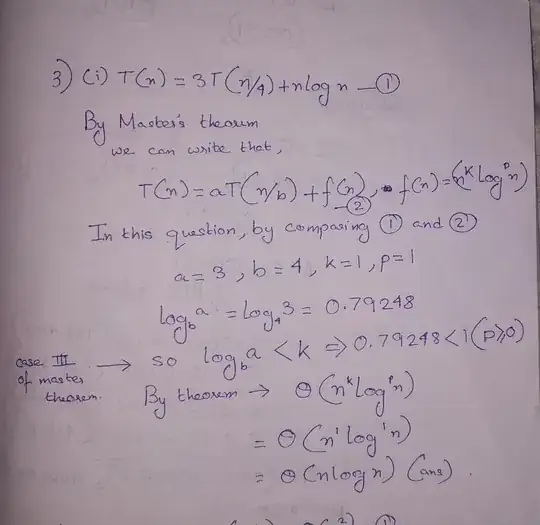 3) (i) T(n) = 3T(n/4) + nlog n — ①
By Master's theorum
we can write that,
T(n) = aT(n/b) + f(n), f(n) = (n^k log^p n)
②
In this question, by comparing ① and ②
a = 3, b = 4, k = 1, p = 1
log_b a = log_4 3 = 0.79248
case III of master theorem. → so log_b a < k ⇒ 0.79248 < 1 (p≥0)
By theorem → Θ(n^k log^p n)
= Θ(n^1 log^1 n)
= Θ(nlog n) (ans).